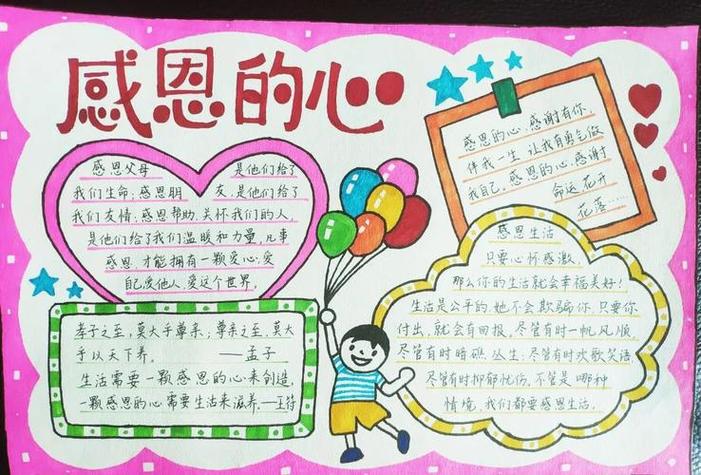 感恩的心
感恩父母 是他们给了
我们生命,感恩朋 友,是他们给了
我们友情,感恩帮助、关怀我们的人,
是他们给了我们温暖和力量,凡事
感恩,才能拥有一颗爱心,爱
自己,爱他人,爱这个世界。
感恩的心,感谢有你,
伴我一生,让我有勇气做
我自己,感恩的心,感谢
命运,花开
花落……
感恩生活
只要心怀感激,
那么你的生活就会幸福美好!
生活是公平的,她不会欺骗你,只要你
付出,就会有回报。尽管有时一帆风顺,
尽管有时暗礁丛生;尽管有时欢歌笑语,
尽管有时抑郁忧伤,不管是哪种
情境,我们都要感恩生活。
孝子之至,莫大乎尊亲;尊亲之至,莫大
乎以天下养。 ——孟子
生活需要一颗感恩的心来创造,
一颗感恩的心需要生活来滋养。—王符